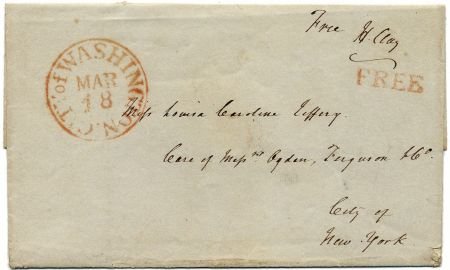 Free H. Clay
CITY of WASHINGTON.
MAR
18
FREE
Miss Louisa Caroline Jeffery.
Care of Messrs Ogden, Ferguson & Co.
City of
New York